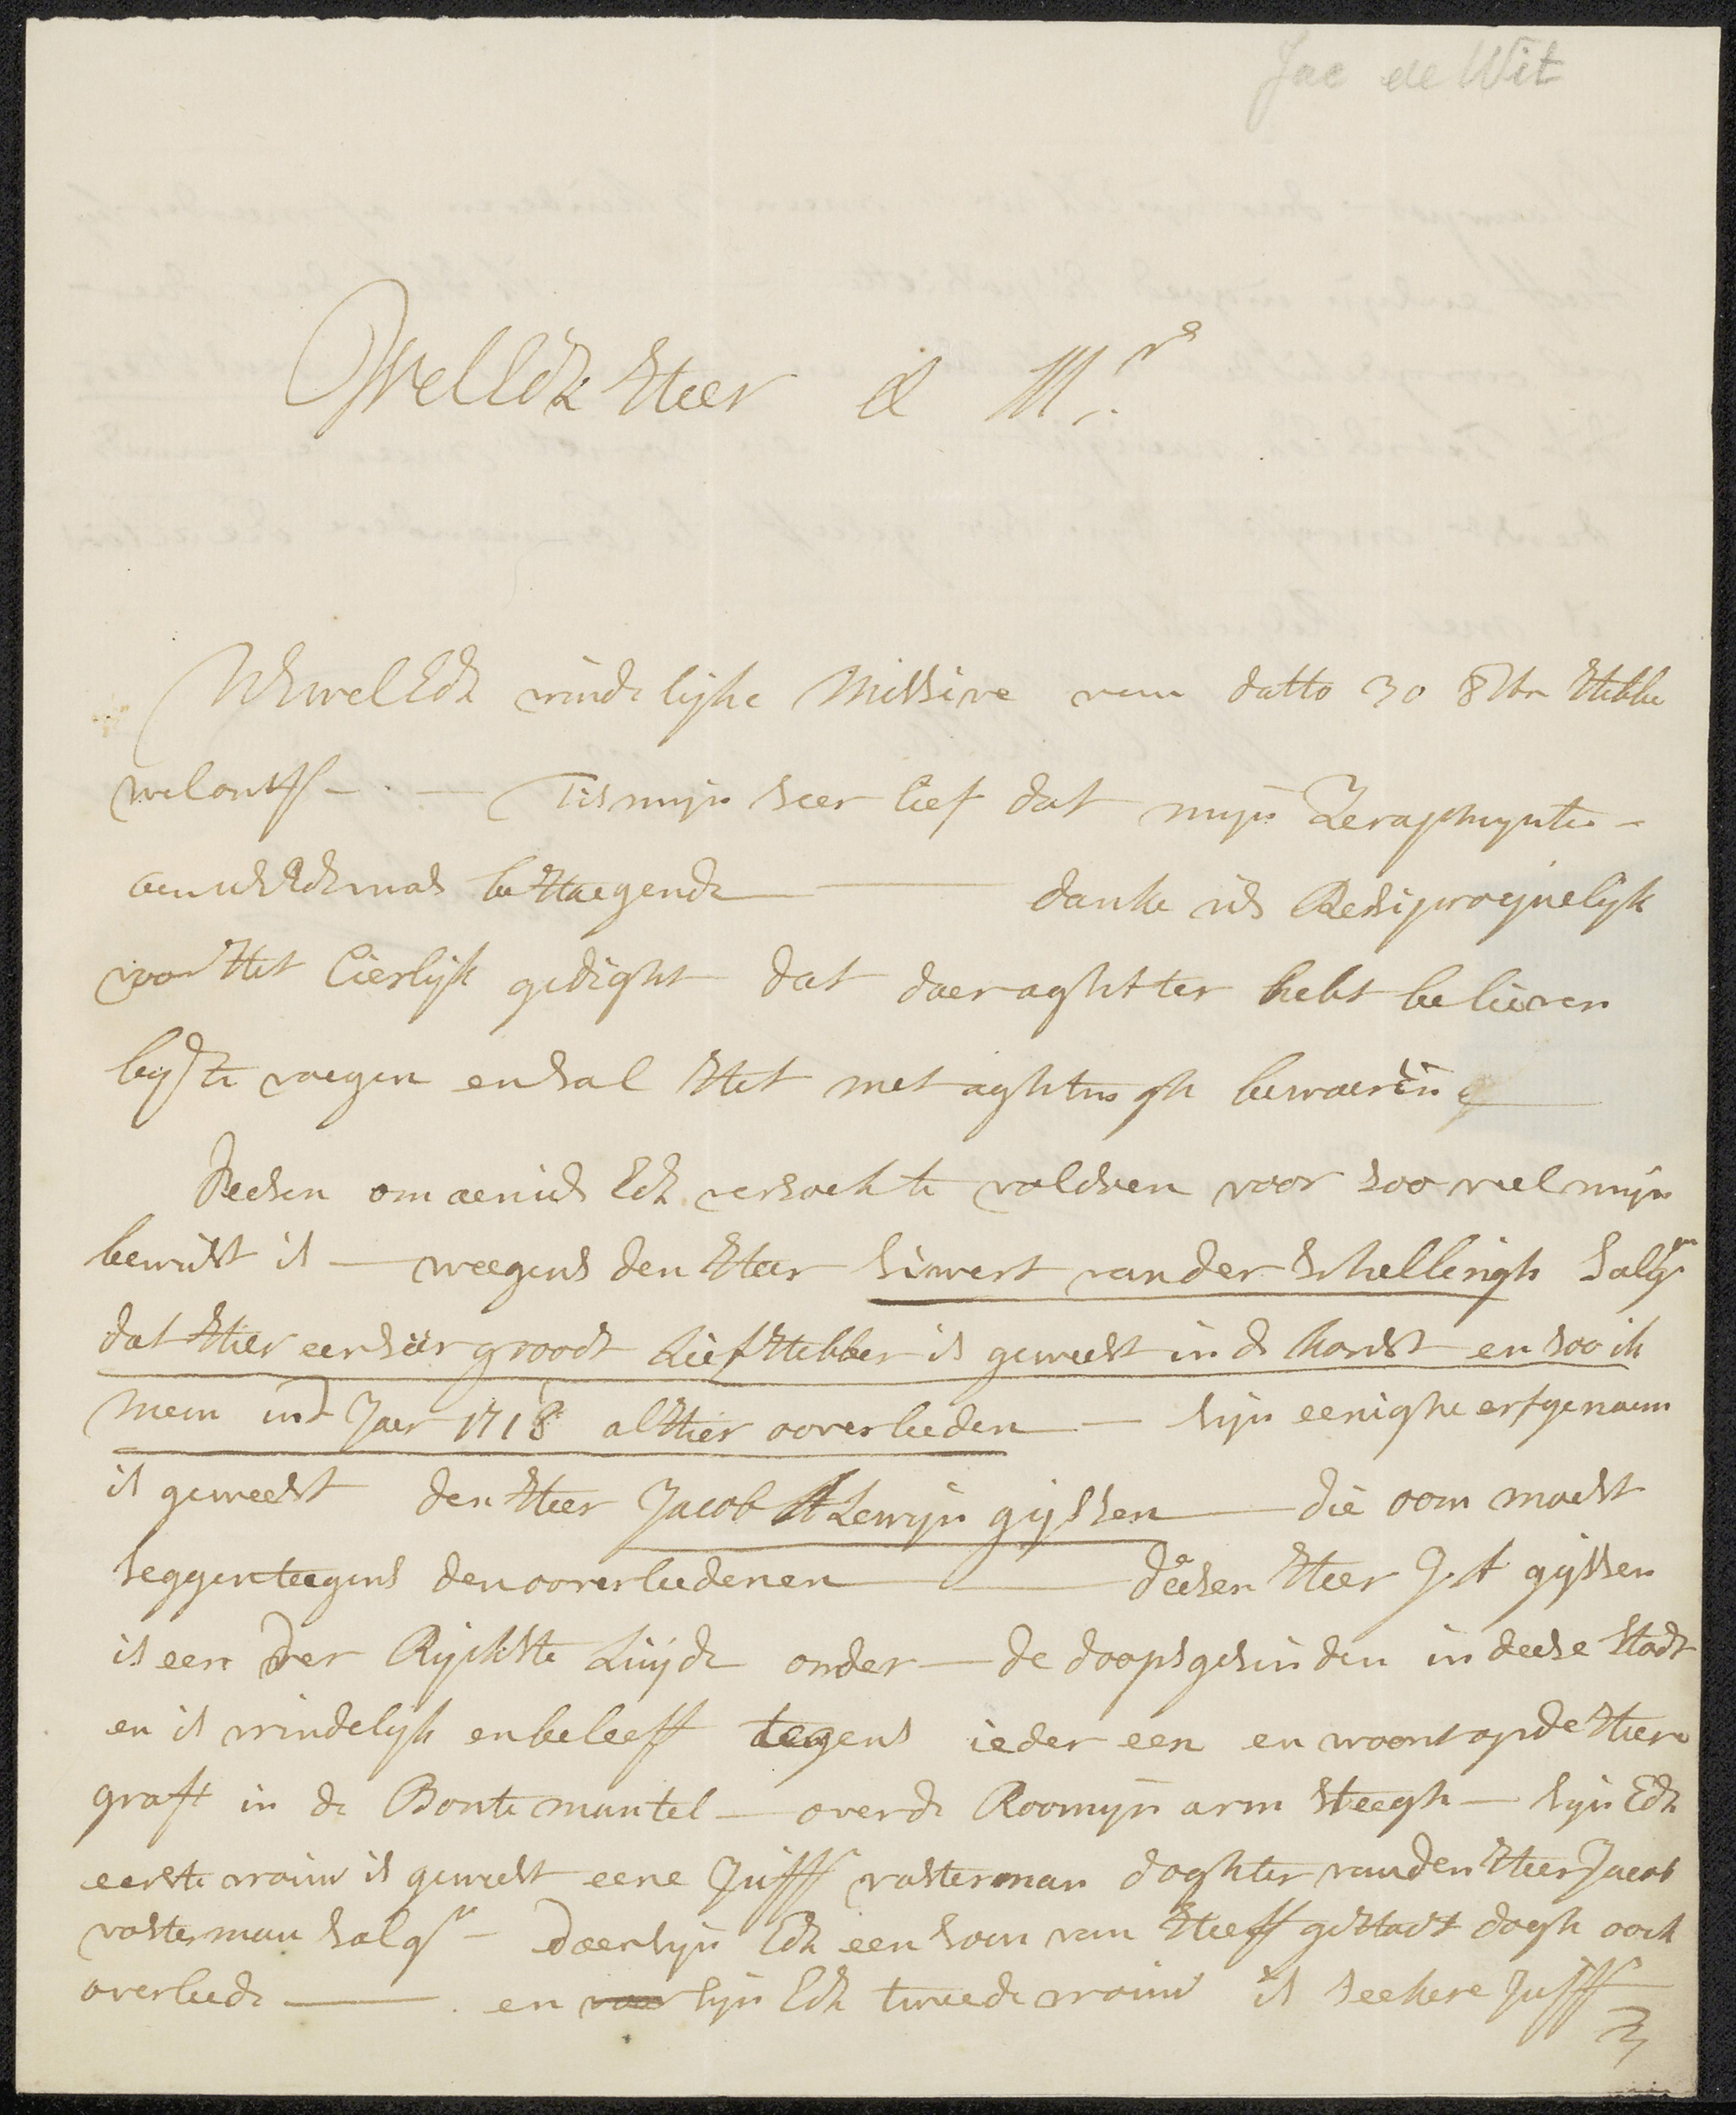 Jac de Wit
WelEdle Heer & Mr
UEwelEdle vrindelijke Missive van datto 30 8ber Hebbe
welontf — . — Tis mijn seer lief dat mijn
aen behaegende — danke UE Resiproquelijk
voor Het Cierlijk gedight dat daeraghtter hebt believen
bij te voegen en sal Het met aghtingh bewaeren
Deesen om aen UE Edle versoek te voldoen voor soo veel mijn
bewust is — weegens den Heer Siwert vander Schellingh Salgr
dat Hier een seer groodt Liefhebber is geweest in de konst en soo ik
mein in't Jaer 1718 alhier ooverleeden — sijn eenighe erfgenaem
is geweest den Heer Jacob A Lewijn gijssen — die oom moest
seggen teegens den ooverleedenen — deesen Heer J. A gijssen
is een der Rijckste Luijde onder — de doopsgesinden in deese Stadt
en is vrindelijk en beleeff teegens ieder een en woont op de Heere
graft in de Bonte mantel — over de Roomijn arm Steegh — sijn Edle
eerste vrouw is geweest eene Juff vosterman doghter van den Heer Jacob
vosterman salgr — Daer sijn Edle een soon van Heeff gehadt dogh oock
overleede — . en sijn Edle tweede vrouw is seekere Juff